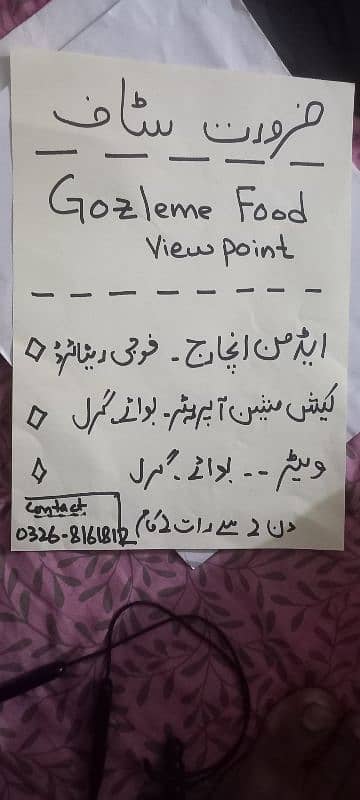 ضرورت سٹاف
Gozleme Food
View point
ایڈمن انچارج - فوجی ریٹائرڈ
کیش مشین آپریٹر - بوائے گرل
ویٹر -- بوائے - گرل
دن 2 سے رات 2 کام
Contact
0326-8161812